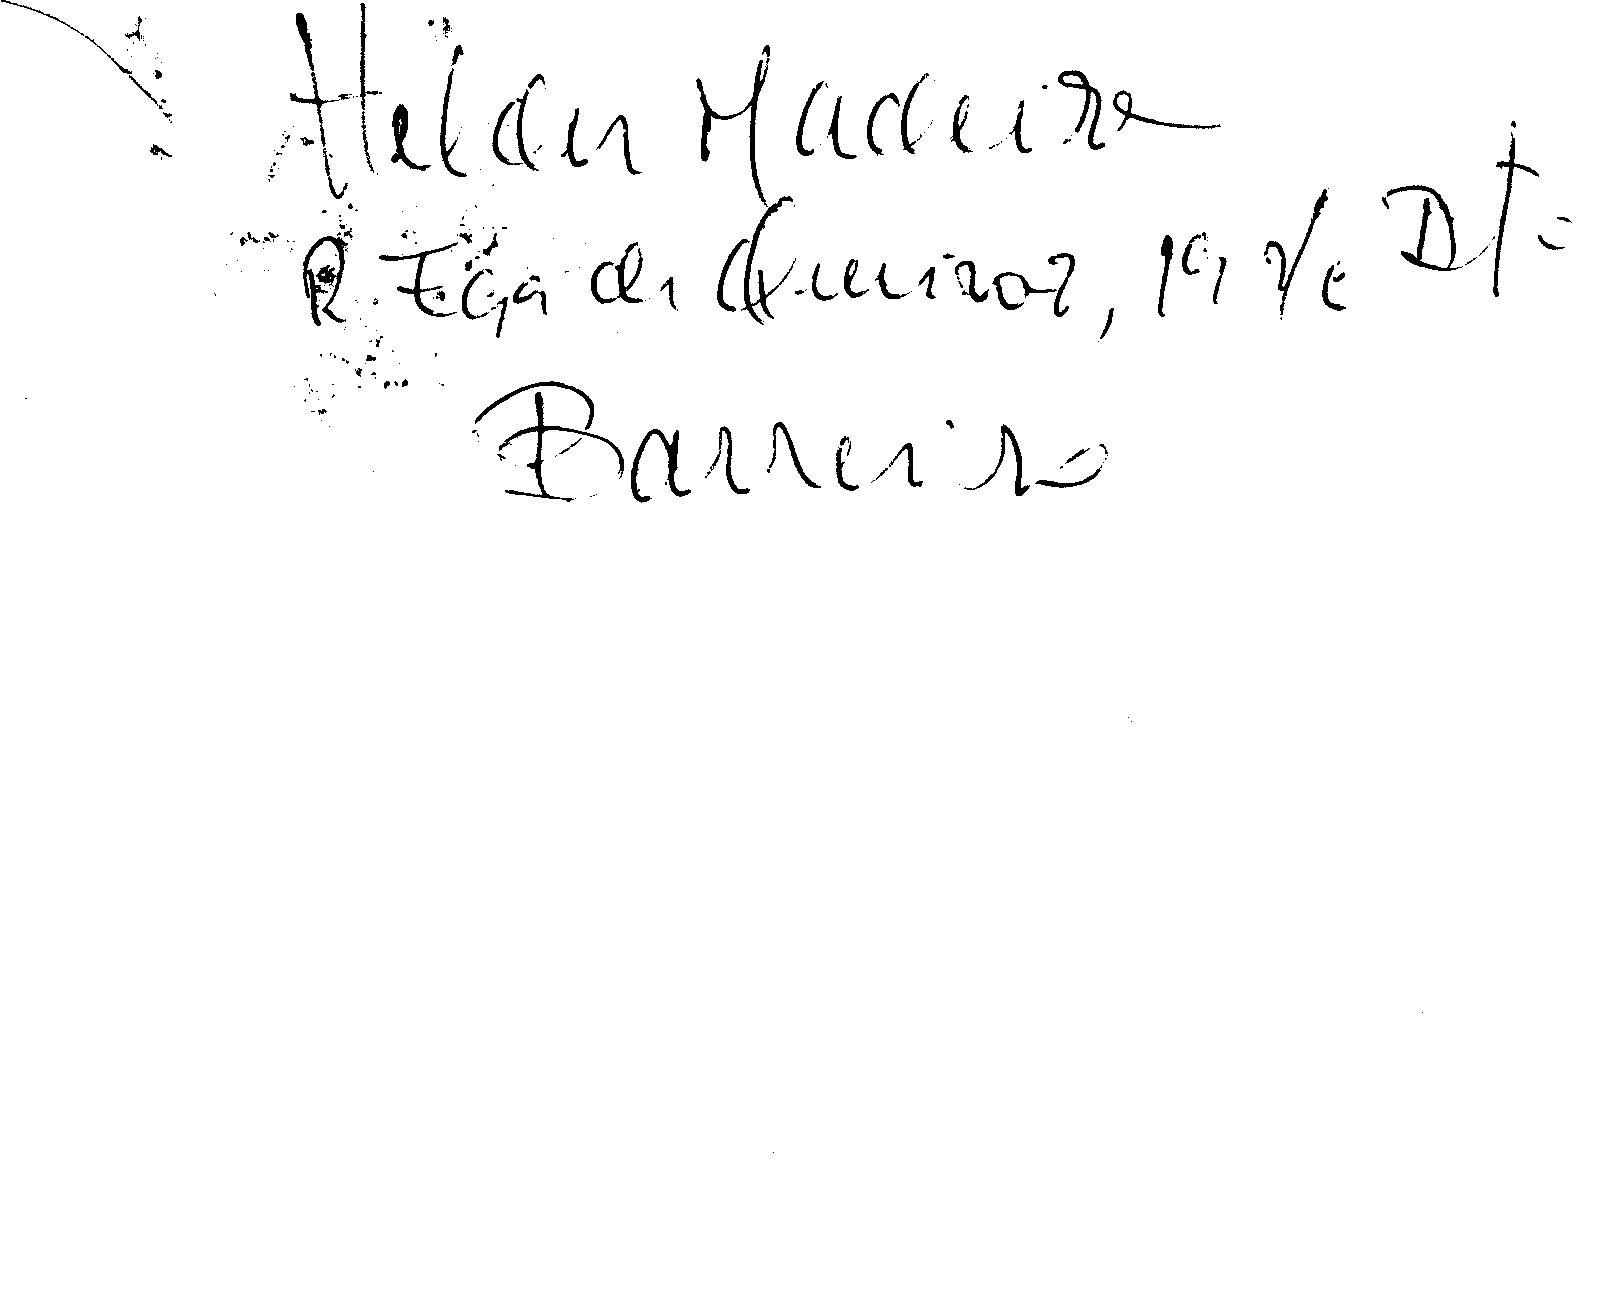 Helder Madeira
R. Eça de Queiroz, 19, r/c Dtº
Barreiro